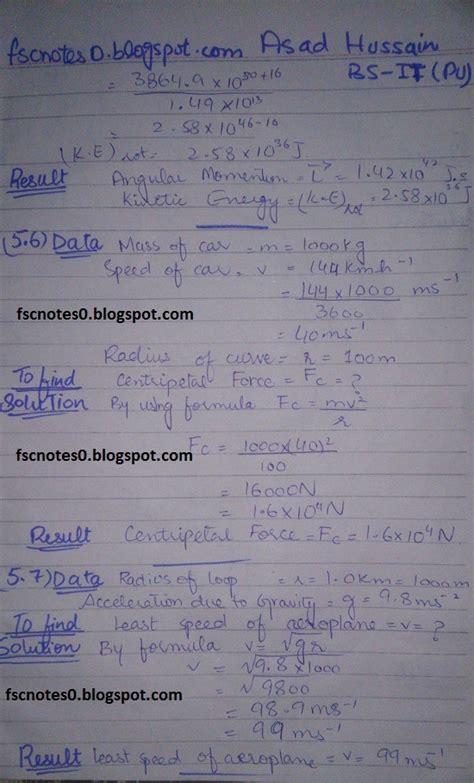 fscnotes0.blogspot.com Asad Hussain
BS-IT (PU)
= 3864.9 × 10^30+16 / 1.49 × 10^13
= 2.58 × 10^46-10
(K.E)rot = 2.58 × 10^36 J
Result Angular Momention = L = 1.42 × 10^42 J.s
Kinetic Energy = (K.E)rot = 2.58 × 10^36 J
(5.6) Data Mass of car = m = 1000 kg
Speed of car = v = 144 Kmh^-1
= 144 × 1000 / 3600 ms^-1
fscnotes0.blogspot.com
= 40 ms^-1
Radius of curve = r = 100m
To find Centripetal Force = Fc = ?
Solution By using formula Fc = mv^2 / r
Fc = 1000 × (40)^2 / 100
fscnotes0.blogspot.com
= 16000N
= 1.6 × 10^4 N
Result Centripetal Force = Fc = 1.6 × 10^4 N
5.7) Data Radius of loop = r = 1.0 Km = 1000m
Acceleration due to Gravity = g = 9.8 ms^-2
To find Least speed of aeroplane = v = ?
Solution By formula v = √gr
v = √9.8 × 1000
fscnotes0.blogspot.com
= √9800
= 98.9 ms^-1
= 99 ms^-1
Result least speed of aeroplane = v = 99 ms^-1